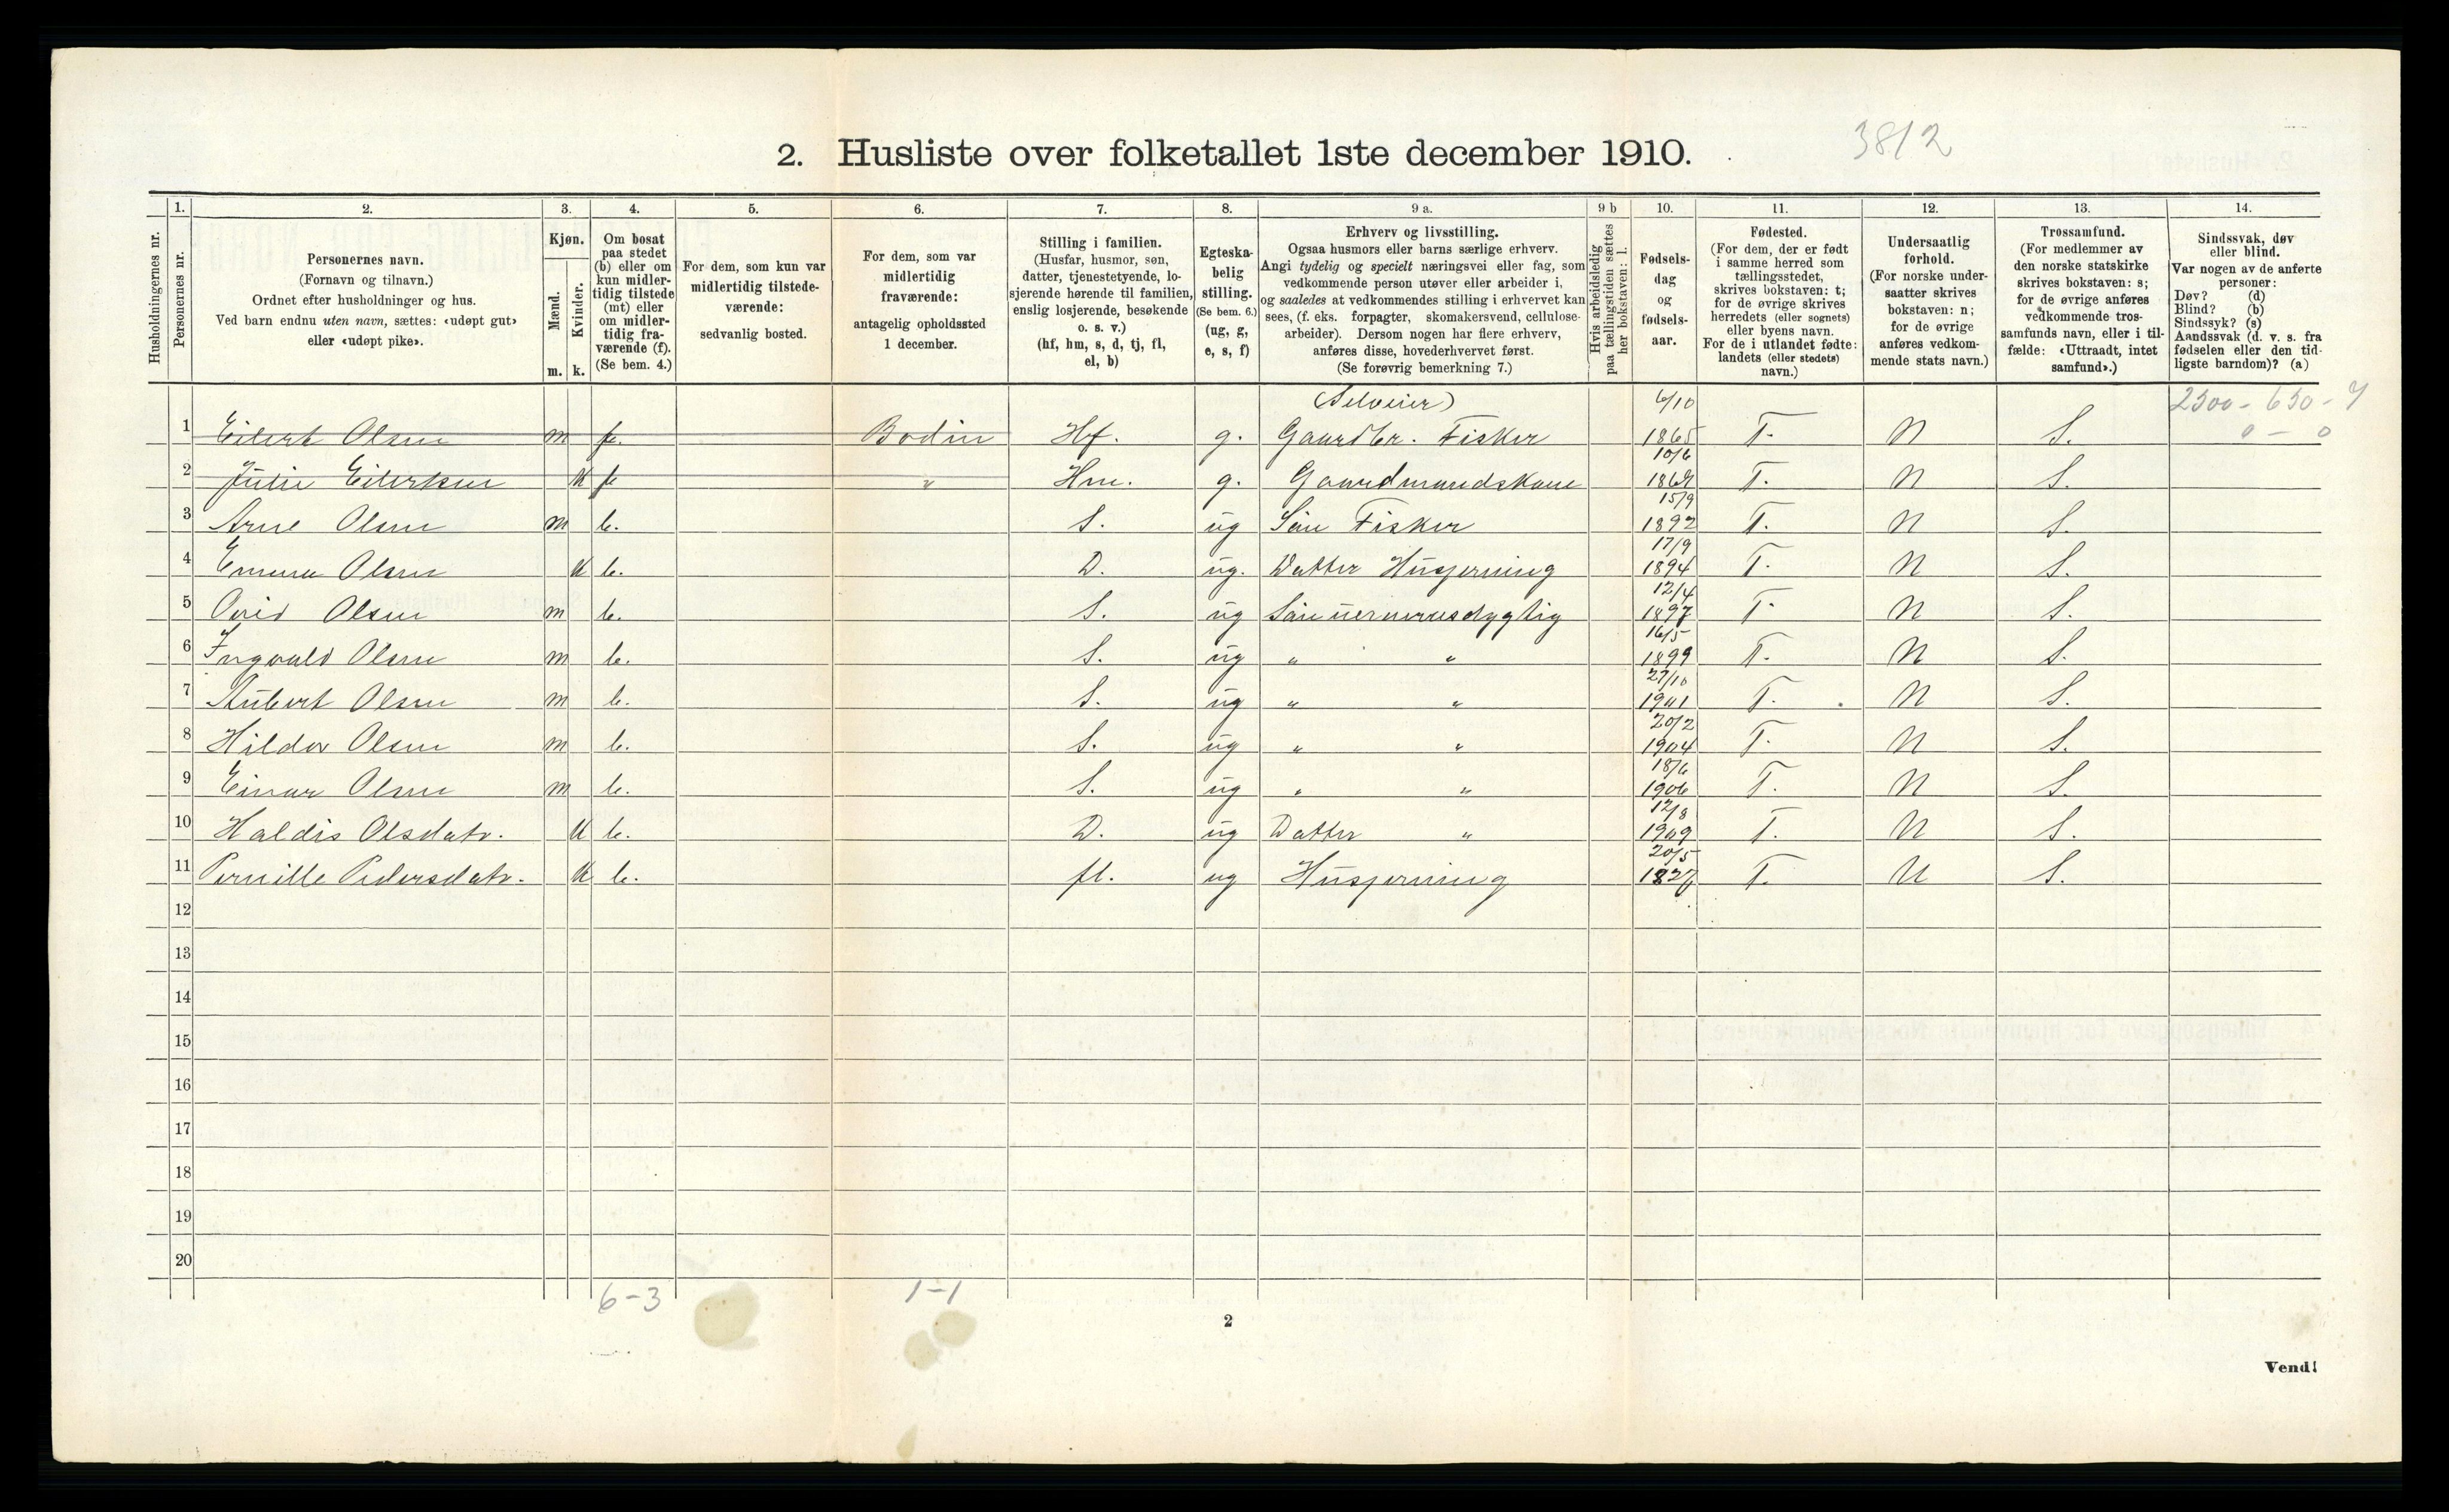 3812
2. Husliste over folketallet 1ste december 1910.
Husholdningernes nr.
1.
Personernes nr.
2.
Personernes navn.
(Fornavn og tilnavn.)
Ordnet efter husholdninger og hus.
Ved barn endnu uten navn, sættes: «udøpt gut»
eller «udøpt pike».
3.
Kjøn.
Mænd.
Kvinder.
m. k.
4.
Om bosat
paa stedet
(b) eller om
kun midler-
tidig tilstede
(mt) eller
om midler-
tidig fra-
værende (f).
(Se bem. 4.)
5.
For dem, som kun var
midlertidig tilstede-
værende:
sedvanlig bosted.
6.
For dem, som var
midlertidig
fraværende:
antagelig opholdssted
1 december.
7.
Stilling i familien.
(Husfar, husmor, søn,
datter, tjenestetyende, lo-
sjerende hørende til familien,
enslig losjerende, besøkende
o. s. v.)
(hf, hm, s, d, tj, fl,
el, b)
8.
Egteska-
belig
stilling.
(Se bem. 6.)
(ug, g,
e, s, f)
9 a.
Erhverv og livsstilling.
Ogsaa husmors eller barns særlige erhverv.
Angi tydelig og specielt næringsvei eller fag, som
vedkommende person utøver eller arbeider i,
og saaledes at vedkommendes stilling i erhvervet kan
sees, (f. eks. forpagter, skomakersvend, cellulose-
arbeider). Dersom nogen har flere erhverv,
anføres disse, hovederhvervet først.
(Se forøvrig bemerkning 7.)
9 b
Hvis arbeidsledig
paa tællingstiden sættes
her bokstaven: l.
10.
Fødsels-
dag
og
fødsels-
aar.
11.
Fødested.
(For dem, der er født
i samme herred som
tællingsstedet,
skrives bokstaven: t;
for de øvrige skrives
herredets (eller sognets)
eller byens navn.
For de i utlandet fødte:
landets (eller stedets)
navn.)
12.
Undersaatlig
forhold.
(For norske under-
saatter skrives
bokstaven: n;
for de øvrige
anføres vedkom-
mende stats navn.)
13.
Trossamfund.
(For medlemmer av
den norske statskirke
skrives bokstaven: s;
for de øvrige anføres
vedkommende tros-
samfunds navn, eller i til-
fælde: «Uttraadt, intet
samfund».)
14.
Sindssvak, døv
eller blind.
Var nogen av de anførte
personer:
Døv? (d)
Blind? (b)
Sindssyk? (s)
Aandssvak (d. v. s. fra
fødselen eller den tid-
ligste barndom)? (a)
(Selveier) 6/10 2300 - 650 - 4
1 Eilert Olsen m f. Bodin Hf. g. Gaardbr. Fisker 1865 T. N S. 0 - 0
10/6
2 Julie Eilertsen k f " Hm. g. Gaardmandskone T. N S.
15/9
3 Arne Olsen m b. S. ug Sön Fisker 1892 T. N S.
17/9
4 Emma Olsen k b. D. ug. Datter Husgerning 1894 T. N S.
12/4
5 Ovid Olsen m b. S. ug Sön uernæresdygtig 1897 T. N S.
16/5
6 Ingvald Olsen m b. S. ug " " 1899 T. N S.
27/10
7 Aubert Olsen m b. S. ug " " 1901 T. N S.
20/2
8 Hildor Olsen m b. S. ug " " 1904 T. N S.
18/6
9 Einar Olsen m b. S. ug " " 1906 T. N S.
12/8
10 Haldis Olsdatr. k b. D. ug Datter " 1909 T. N S.
20/5
11 Pernille Pedersdatr. k b. fl. ug Husgerning T. N S.
12
13
14
15
16
17
18
19
20
6-3 1-1
2
Vend!